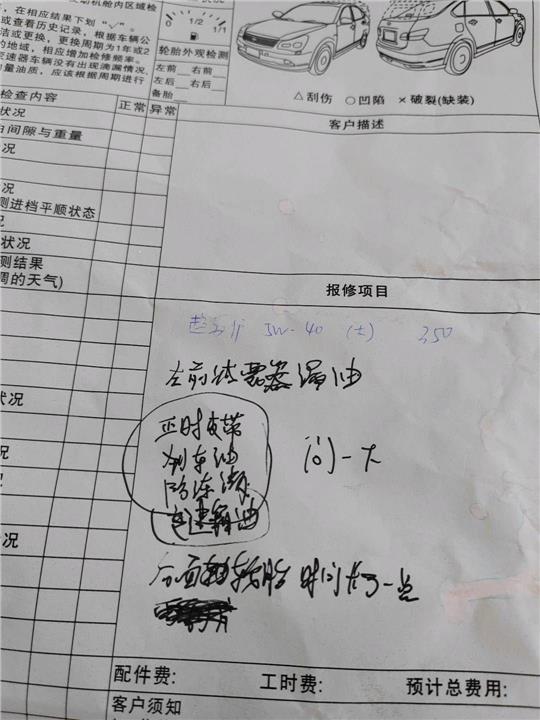 动机舱内区域检
，在相应结果下划"✓"。
或查看历史记录，根据车辆公
洁或更换，更换周期为1年或2
的地域，相应增加检修频率。
变速器车辆没有出现滴漏情况，
量油质，应该根据周期进行
0 1/2 1
轮胎外观检测
左前 右前
左后 右后
备胎
△刮伤 ○凹陷 ×破裂(缺装)
检查内容 正常 异常
客户描述
状况
由间隙与重量
况
况
测进档平顺状态
况
状况
测结果
周的天气)
报修项目
5W-40 (土) 350
左前减震器漏油
正时皮带
刹车油
防冻液
变速箱油
问一下
后面轮胎 时间长了一点
状况
况
况
配件费: 工时费: 预计总费用:
客户须知